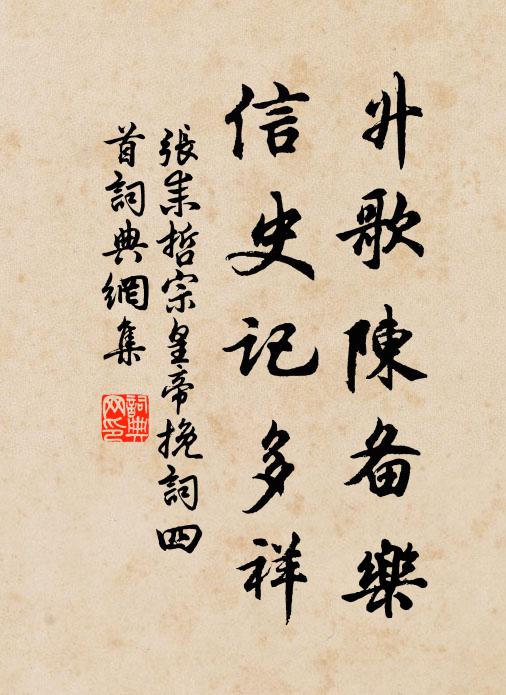 升歌陳备樂
信史記多祥
張耒哲宗皇帝挽詞四
首詞典網集
詞典
网印